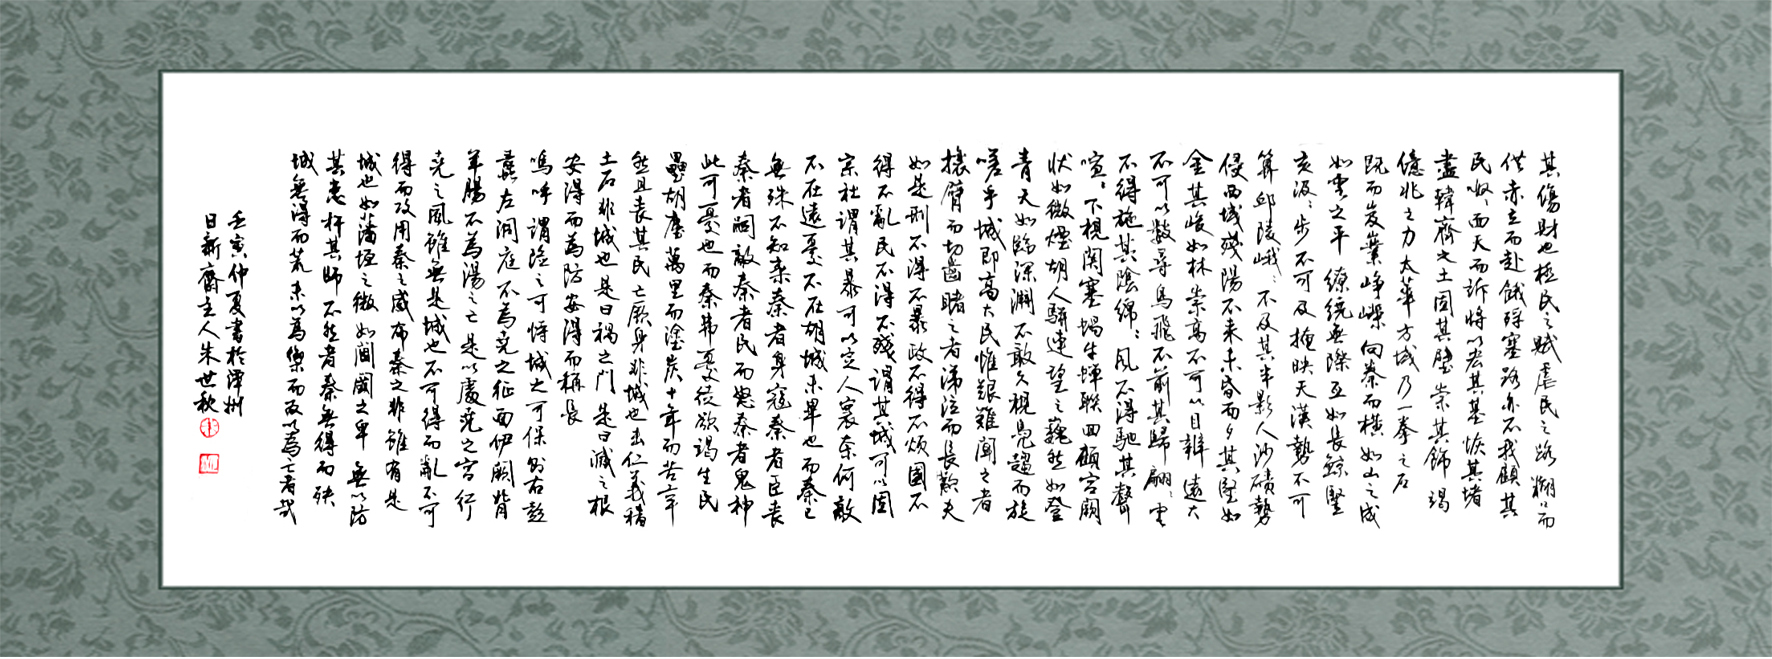 其傷財也極民之賦虐民之路糊糊而
供赤立而赴餓殍塞路亦不我顧其
民嗷嗷面天而訴將以宏其基恢其堵
盡韓齊之土固其壁崇其飾竭
億兆之力太華方城乃一拳之石
既而岌嶪崢嶸向秦而橫如山之成
如雲之平繚繞無際亙如長鯨堅
亥汲汲步不可及掩映天漢勢不可
算邱陵峨峨不及其半影入沙磧勢
侵西域殘陽不来未昏而夕其堅如
金其峻如林崇高不可以目辨遠大
不可以數尋鳥飛不前其歸翩翩雲
不得施其陰綿綿風不得馳其聲
喧喧下視関塞蝸牛蟬聯回顧宮闕
狀如微煙胡人駢連望之巍然如登
青天如臨深淵不敢久視晃趨而旋
嗟乎城即高大民惟艱難聞之者
攘臂而切齒睹之者涕泣而長歎夫
如是刑不得不暴政不得不煩國不
得不亂民不得不殘謂其城可以固
宗社謂其暴可以定人寰奈何敵
不在遠憂不在胡城未畢也而秦已
無殊不知亲秦者身寇秦者臣喪
秦者嗣敵秦者民而怨秦者鬼神
此可憂也而秦弗憂徒欲竭生民
壘胡塵萬里而塗炭十年而苦辛
然且喪其民亡厥身非城也去仁義積
土石非城也是曰禍之門是曰滅之根
安得而為防安得而稱長
嗚呼謂險之可恃城之可保則右彭
蠡左洞庭不為堯之征西伊闕背
羊腸不為湯之亡是以處堯之宮行
堯之風雖無是城也不可得而亂不可
得而攻用秦之威布秦之非雖有是
城也如藩垣之微如閫閾之卑無以防
其患杆其師不然者秦無得而殃
城無得而荒未以為樂而反以為亡者哉
壬寅仲夏書於潭州
日新齋主人朱世秋